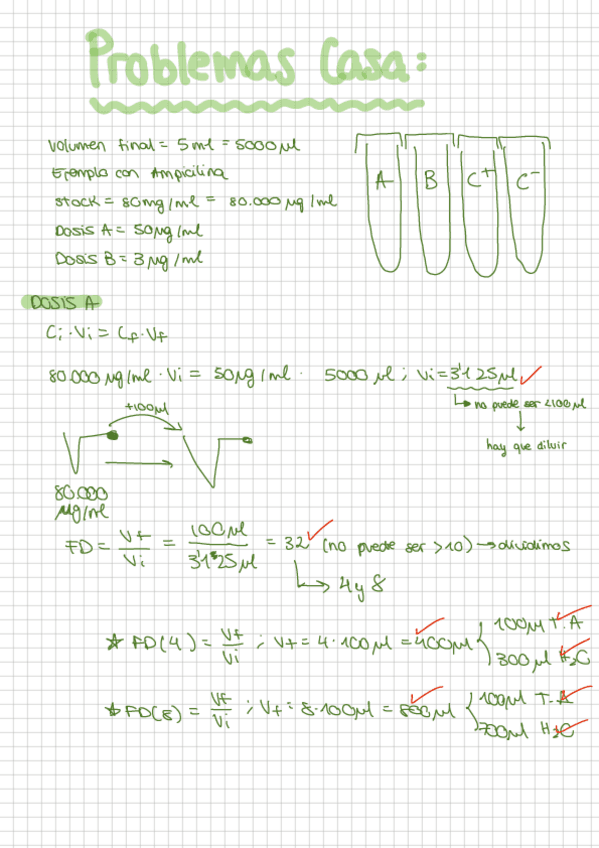 Problemas Casa:
Volumen final = 5ml = 5000 µl
Ejemplo con Ampicilina
stock = 80mg/ml = 80.000 µg/ml
Dosis A = 50µg/ml
Dosis B = 3µg/ml
A B C+ C-
DOSIS A
Ci·Vi = Cf·Vf
80.000 µg/ml · Vi = 50µg/ml · 5000 µl ; Vi = 3'125µl ✓
↳ no puede ser <100µl
↓
hay que diluir
+100µl
80.000
µg/ml
FD = Vf/Vi = 100µl/3'125µl = 32 ✓ (no puede ser >10) → dividimos
↳ 4 y 8
★ FD(4) = Vf/Vi ; Vf = 4·100µl = 400µl ✓ { 100µl T.A ✓
300µl H2O ✓
★ FD(8) = Vf/Vi ; Vf = 8·100µl = 800µl ✓ { 100µl T.A ✓
700µl H2O ✓